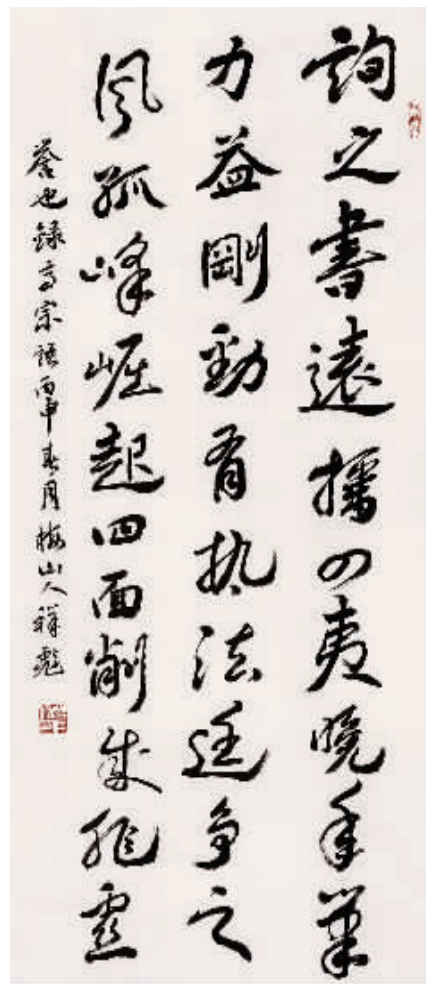 詢之書遠播四夷晚年筆
力益剛勁有执法廷争之
風孤峰崛起四面削成非虚
譽也録高宗語丙申春月梅山人祥彪